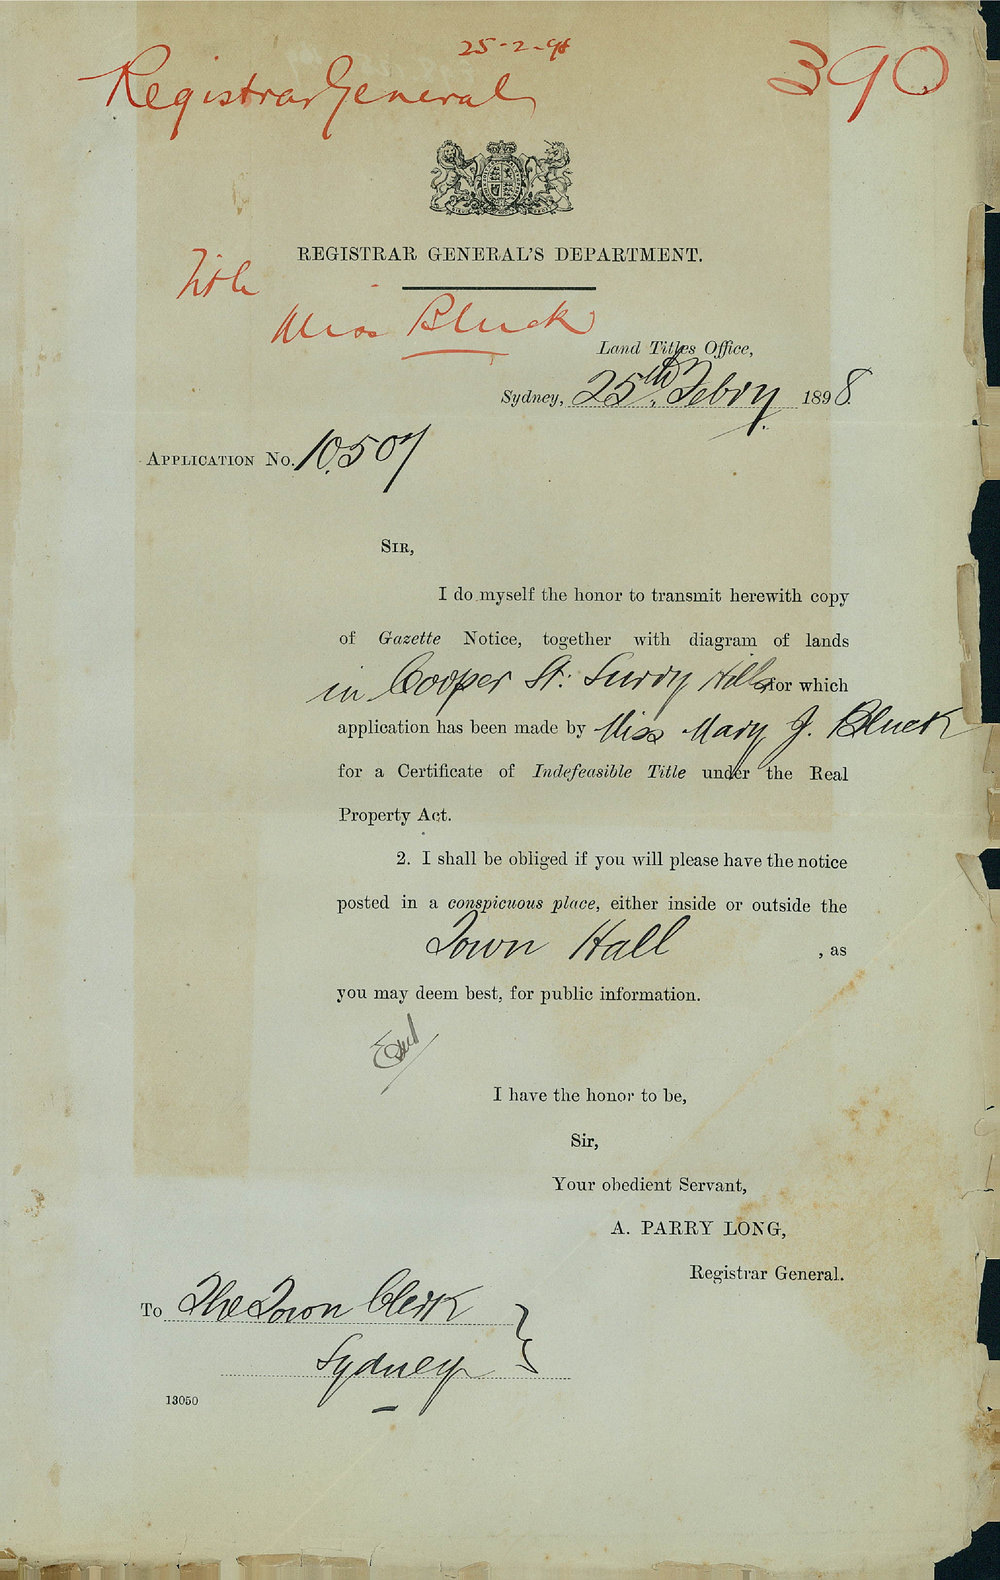 25-2-98
Registrar General
390
REGISTRAR GENERAL'S DEPARTMENT.
Title
Miss Bluck
Land Titles Office,
Sydney, 25th. Febry 1898.
APPLICATION No. 10,507
SIR,
I do myself the honor to transmit herewith copy
of Gazette Notice, together with diagram of lands
in Cooper St: Surry Hills for which
application has been made by Miss Mary J. Bluck
for a Certificate of Indefeasible Title under the Real
Property Act.
2. I shall be obliged if you will please have the notice
posted in a conspicuous place, either inside or outside the
Town Hall , as
you may deem best, for public information.
I have the honor to be,
Sir,
Your obedient Servant,
A. PARRY LONG,
Registrar General.
To The Town Clerk
Sydney
13050